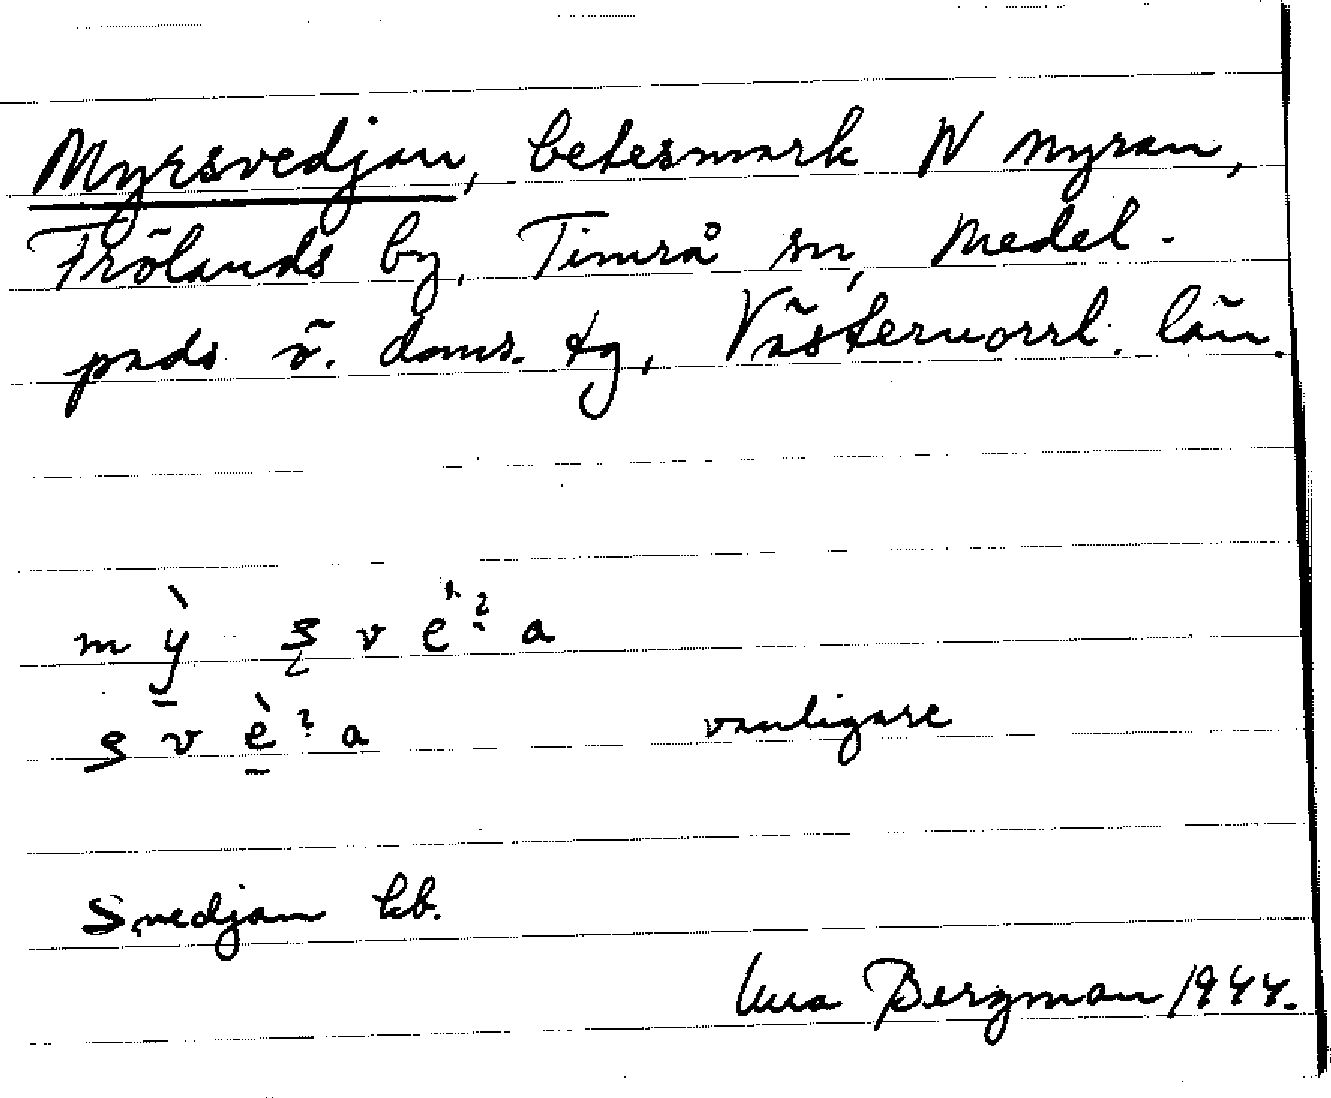 Myrsvedjan, betesmark N Myran,
Frölands by, Timrå sn, Medel-
pads ö. doms. tg, Västernorrl. län.
vanligare
Svedjan kb.
Bergman 1944.